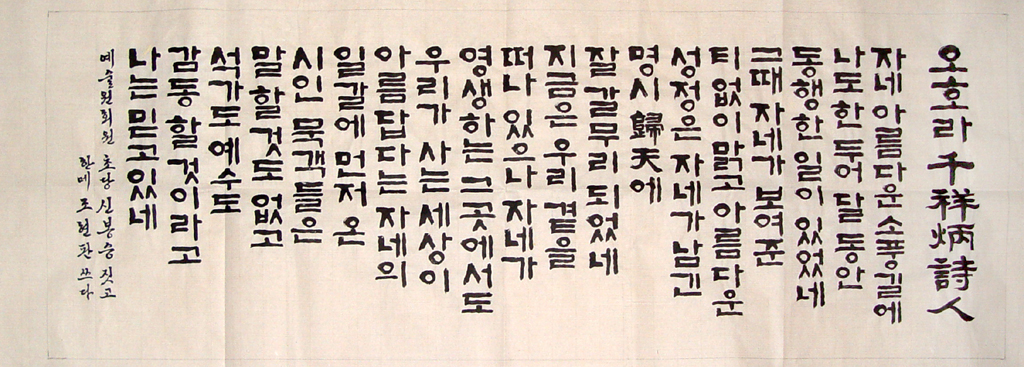 오호라 千祥炳詩人
자네 아름다운 소풍길에
나도 한 두어달 동안
동행한 일이 있었네
그때 자네가 보여준
티없이 맑고 아름다운
성정은 자네가 남긴
명시 歸天에
잘 갈무리 되었네
지금은 우리 곁을
떠나 있으나 자네가
영생하는 그곳에서도
우리가 사는 세상이
아름답다는 자네의
일갈에 먼저 온
시인 묵객들은
말할 것도 없고
석가도 예수도
감동할 것이라고
나는 믿고있네
예술원회원 초당 신봉승 짓고
한메 조현판 쓰다